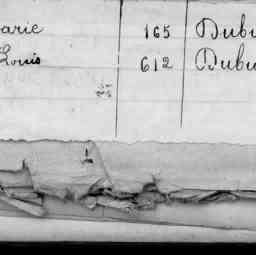 arie 165 Dubu
Louis 612 Dubu